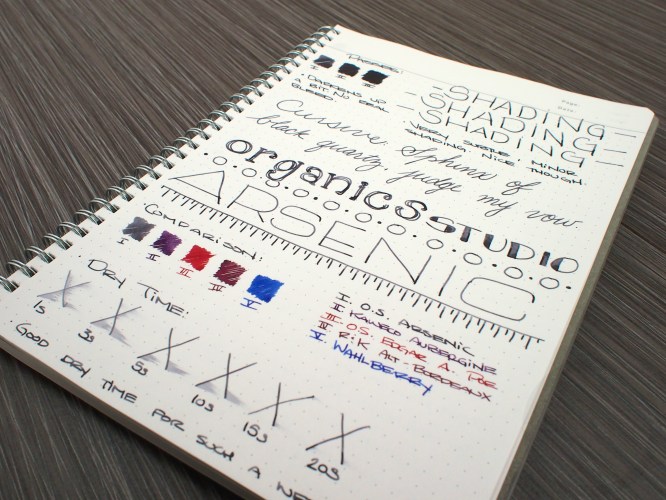 Passes:
I II III
· Darkens up
a bit. No real
bleed.
Page:
Date:
-SHADING-
-SHADING-
-SHADING-
Very subtle, minor
shading. Nice though.
Cursive. Sphinx of
black quartz, judge my vow.
organics STUDIO
ARSENIC
Comparison:
I II III IV V
I. O.S. Arsenic
II. Kaweco Aubergine
III. O.S. Edgar A. Poe
IV. R&K Alt-Bordeaux
V. Wahlberry
· Dry Time:
1s 3s 5s 10s 15s 20s
Good dry time for such a